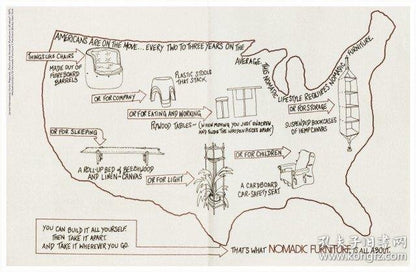 AMERICANS ARE ON THE MOVE... EVERY TWO TO THREE YEARS ON THE AVERAGE.
THIS NOMADIC LIFESTYLE REQUIRES NOMADIC FURNITURE.
THINGS LIKE CHAIRS
MADE OUT OF
FIBREBOARD
BARRELS
OR FOR COMPANY
PLASTIC STOOLS
THAT STACK.
OR FOR EATING AND WORKING
PLYWOOD TABLES— (WHEN MOVING YOU JUST UNSCREW,
AND SLIDE THE WOODEN PIECES APART)
OR FOR STORAGE
SUSPENDED BOOKCASES
OF HEMP CANVAS
OR FOR SLEEPING
A ROLL-UP BED OF BEECHWOOD
AND LINEN-CANVAS
OR FOR LIGHT
OR FOR CHILDREN
A CARDBOARD
CAR-SAFETY SEAT
YOU CAN BUILD IT ALL YOURSELF.
THEN TAKE IT APART.
AND TAKE IT WHEREVER YOU GO.
THAT'S WHAT NOMADIC FURNITURE IS ALL ABOUT.
孔夫子旧书网
www.kongfz.com